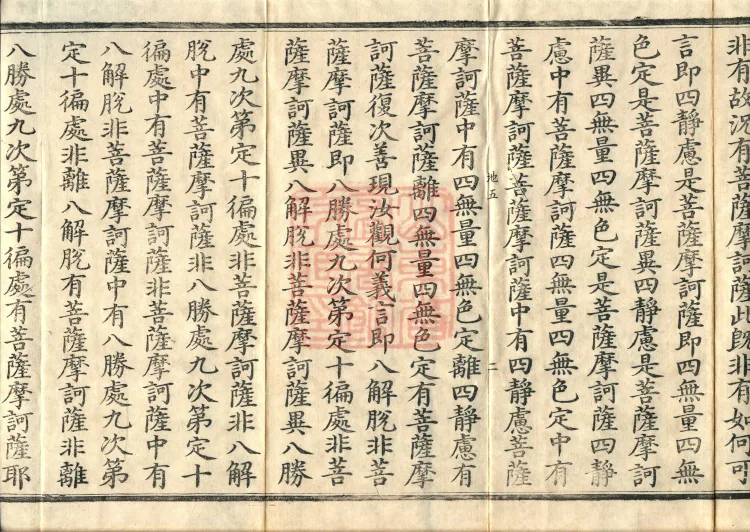 非有故況有菩薩摩訶薩此旣非有如何可
言即四靜慮是菩薩摩訶薩即四無量四無
色定是菩薩摩訶薩異四靜慮是菩薩摩訶
薩異四無量四無色定是菩薩摩訶薩四靜
慮中有菩薩摩訶薩四無量四無色定中有
菩薩摩訶薩菩薩摩訶薩中有四靜慮菩薩
地五 二
摩訶薩中有四無量四無色定離四靜慮有
菩薩摩訶薩離四無量四無色定有菩薩摩
訶薩復次善現汝觀何義言即八解脫非菩
薩摩訶薩即八勝處九次第定十徧處非菩
薩摩訶薩異八解脫非菩薩摩訶薩異八勝
處九次第定十徧處非菩薩摩訶薩非八解
脫中有菩薩摩訶薩非八勝處九次第定十
徧處中有菩薩摩訶薩非菩薩摩訶薩中有
八解脫非菩薩摩訶薩中有八勝處九次第
定十徧處非離八解脫有菩薩摩訶薩非離
八勝處九次第定十徧處有菩薩摩訶薩耶